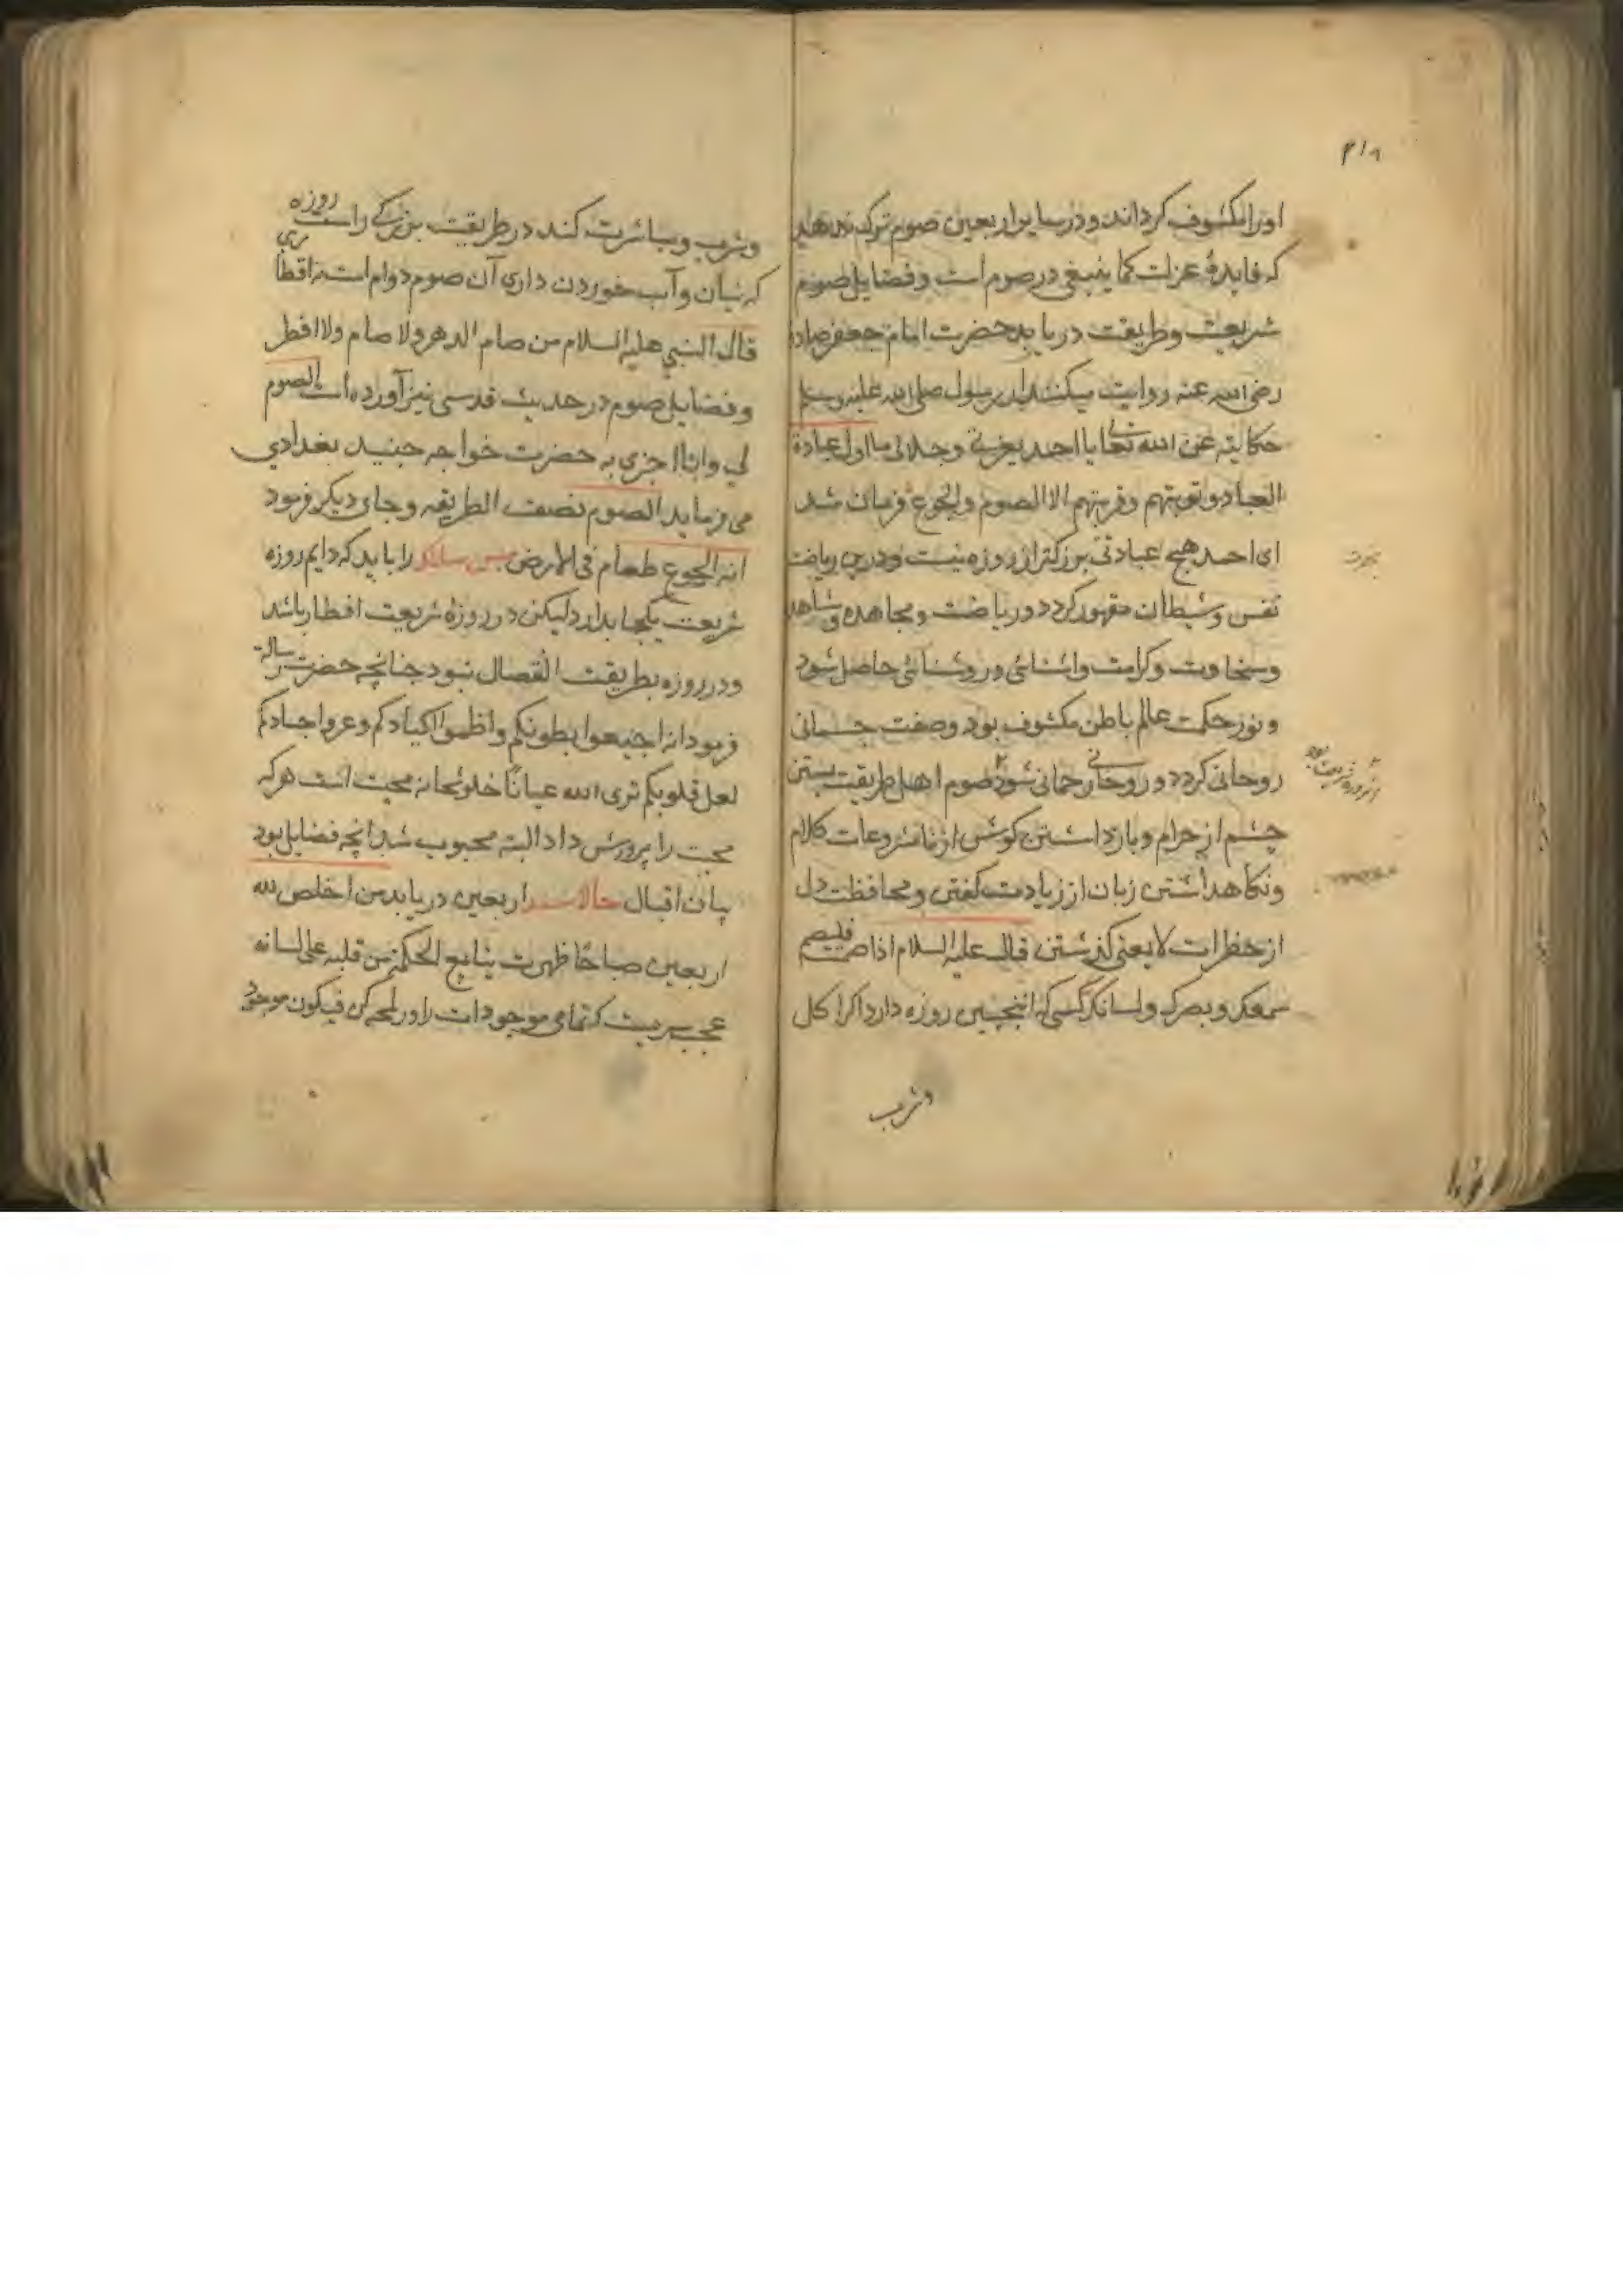 ۴۱۸
اورا مکشوف کرداند و در سایر اربعین صوم ترک ندهد
که فایدهٔ عزلت کما ینبغی در صوم است و فضایل صوم
شریعت و طریقت دریابد حضرت امام جعفر صادق
رضی الله عنه روایت میکنند از رسول صلی الله علیه وسلم
حکایة عن الله تعالی یا احمد بعزتی و جلالی ما اول عبادة
العباد و توبتهم و قربتهم الا الصوم والجوع فرمان شد
ای احمد هیچ عبادتی بزرکتر از روزه نیست و درین ریاضت
نفس و شیطان مقهور کردد و ریاضت و مجاهده و مشاهد
و سخاوت و کرامت و اشنائی و روشنائی حاصل شود
و نور حکمت عالم باطن مکشوف بود و صفت جسمانی
روحانی کردد و روحانی رحمانی شود صوم اهل طریقت بستن
چشم از حرام و بازداشتن کوش از نامشروعات کلام
و نکاهداشتن زبان از زیادت کفتن و محافظت دل
از خطرات لایعنی کذشتن قال علیه السلام اذا صمت فلیصم
سمعک و بصرک و لسانک کسی که اینچنین روزه دارد اکر اکل
وشرب
وشرب و مباشرت کند در طریقت بزرکی راست روزه
که بنان و آب خوردن داری آن صوم دوام است نه افطا
قال النبی علیه السلام من صام الدهر ولا صام ولا افطر
و فضایل صوم در حدیث قدسی نیز آورده است الصوم
لی وانا اجزی به حضرت خواجه جنید بغدادی
می فرماید الصوم نصف الطریقه و جای دیکر فرمود
انه الجوع طعام فی الارض پس سالک را باید که دایم روزه
شریعت یکجا بدارد لیکن در روزهٔ شریعت افطار باشد
و در روزه بطریقت انفصال نبود چنانچه حضرت رسالت
فرمودانه اجیعوا بطونکم واظمؤا اکبادکم وعروا اجسادکم
لعل قلوبکم تری الله عیانا خلوتخانه محبت است هر که
محبت را پرورش داد البته محبوب شد انچه فضایل بود
بیان اقبال حالات اربعین دریابد من اخلص لله
اربعین صباحا ظهرت ینابیع الحکمة من قلبه علی لسانه
عجب سریست که تمامی موجودات را در لمحه کن فیکون موجود